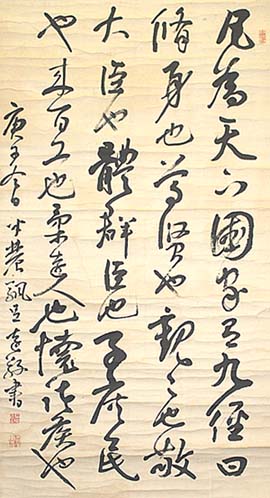 凡為天下國家有九經曰
脩身也尊賢也親々也敬
大臣也體群臣也子庶民
也来百工也柔遠人也懷諸侯也
書